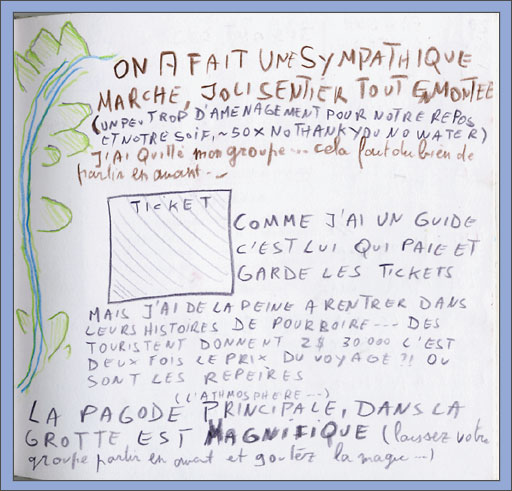 ON A FAIT UNE SYMPATHIQUE
MARCHE, JOLI SENTIER TOUT EN MONTEE
(UN PEU TROP D'AMENAGEMENT POUR NOTRE REPOS
ET NOTRE SOIF, ~50X NO THANK YOU NO WATER)
J'AI Quillé mon groupe... cela fait du bien de
partir en avant...
TICKET
COMME J'AI UN GUIDE
C'EST LUI QUI PAIE ET
GARDE LES TICKETS
MAIS J'AI DE LA PEINE A RENTRER DANS
LEURS HISTOIRES DE POURBOIRE --- DES
TOURISTENT DONNENT 2$ 30000 C'EST
DEUX FOIS LE PRIX DU VOYAGE ?! OU
SONT LES REPEIRES
(L'ATHMOSPHERE...)
LA PAGODE PRINCIPALE, DANS LA
GROTTE EST MAGNIFIQUE (laissez votre
groupe partir en avant et goutez la magie...)